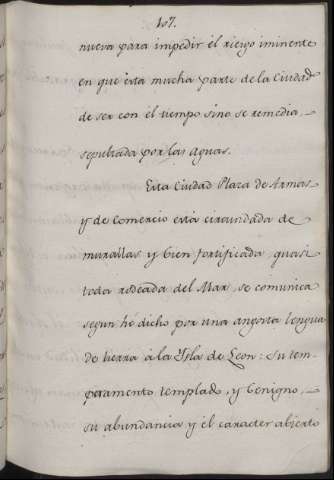 107.
nueva para impedir él riesgo iminente
en que ésta mucha parte de la Ciudad
de ser con él tiempo sino se remedia,
sepultada por las aguas.
Esta Ciudad Plaza de Armas
y de Comercio está circundada de
murallas y bien fortificada, quasi
toda rodeada del Mar, se comunica
segun hé dicho por una angosta lengua
de tierra á la Ysla de Leon: Su tem-
peramento templado, y benigno,
su abundancia y él caracter abierto